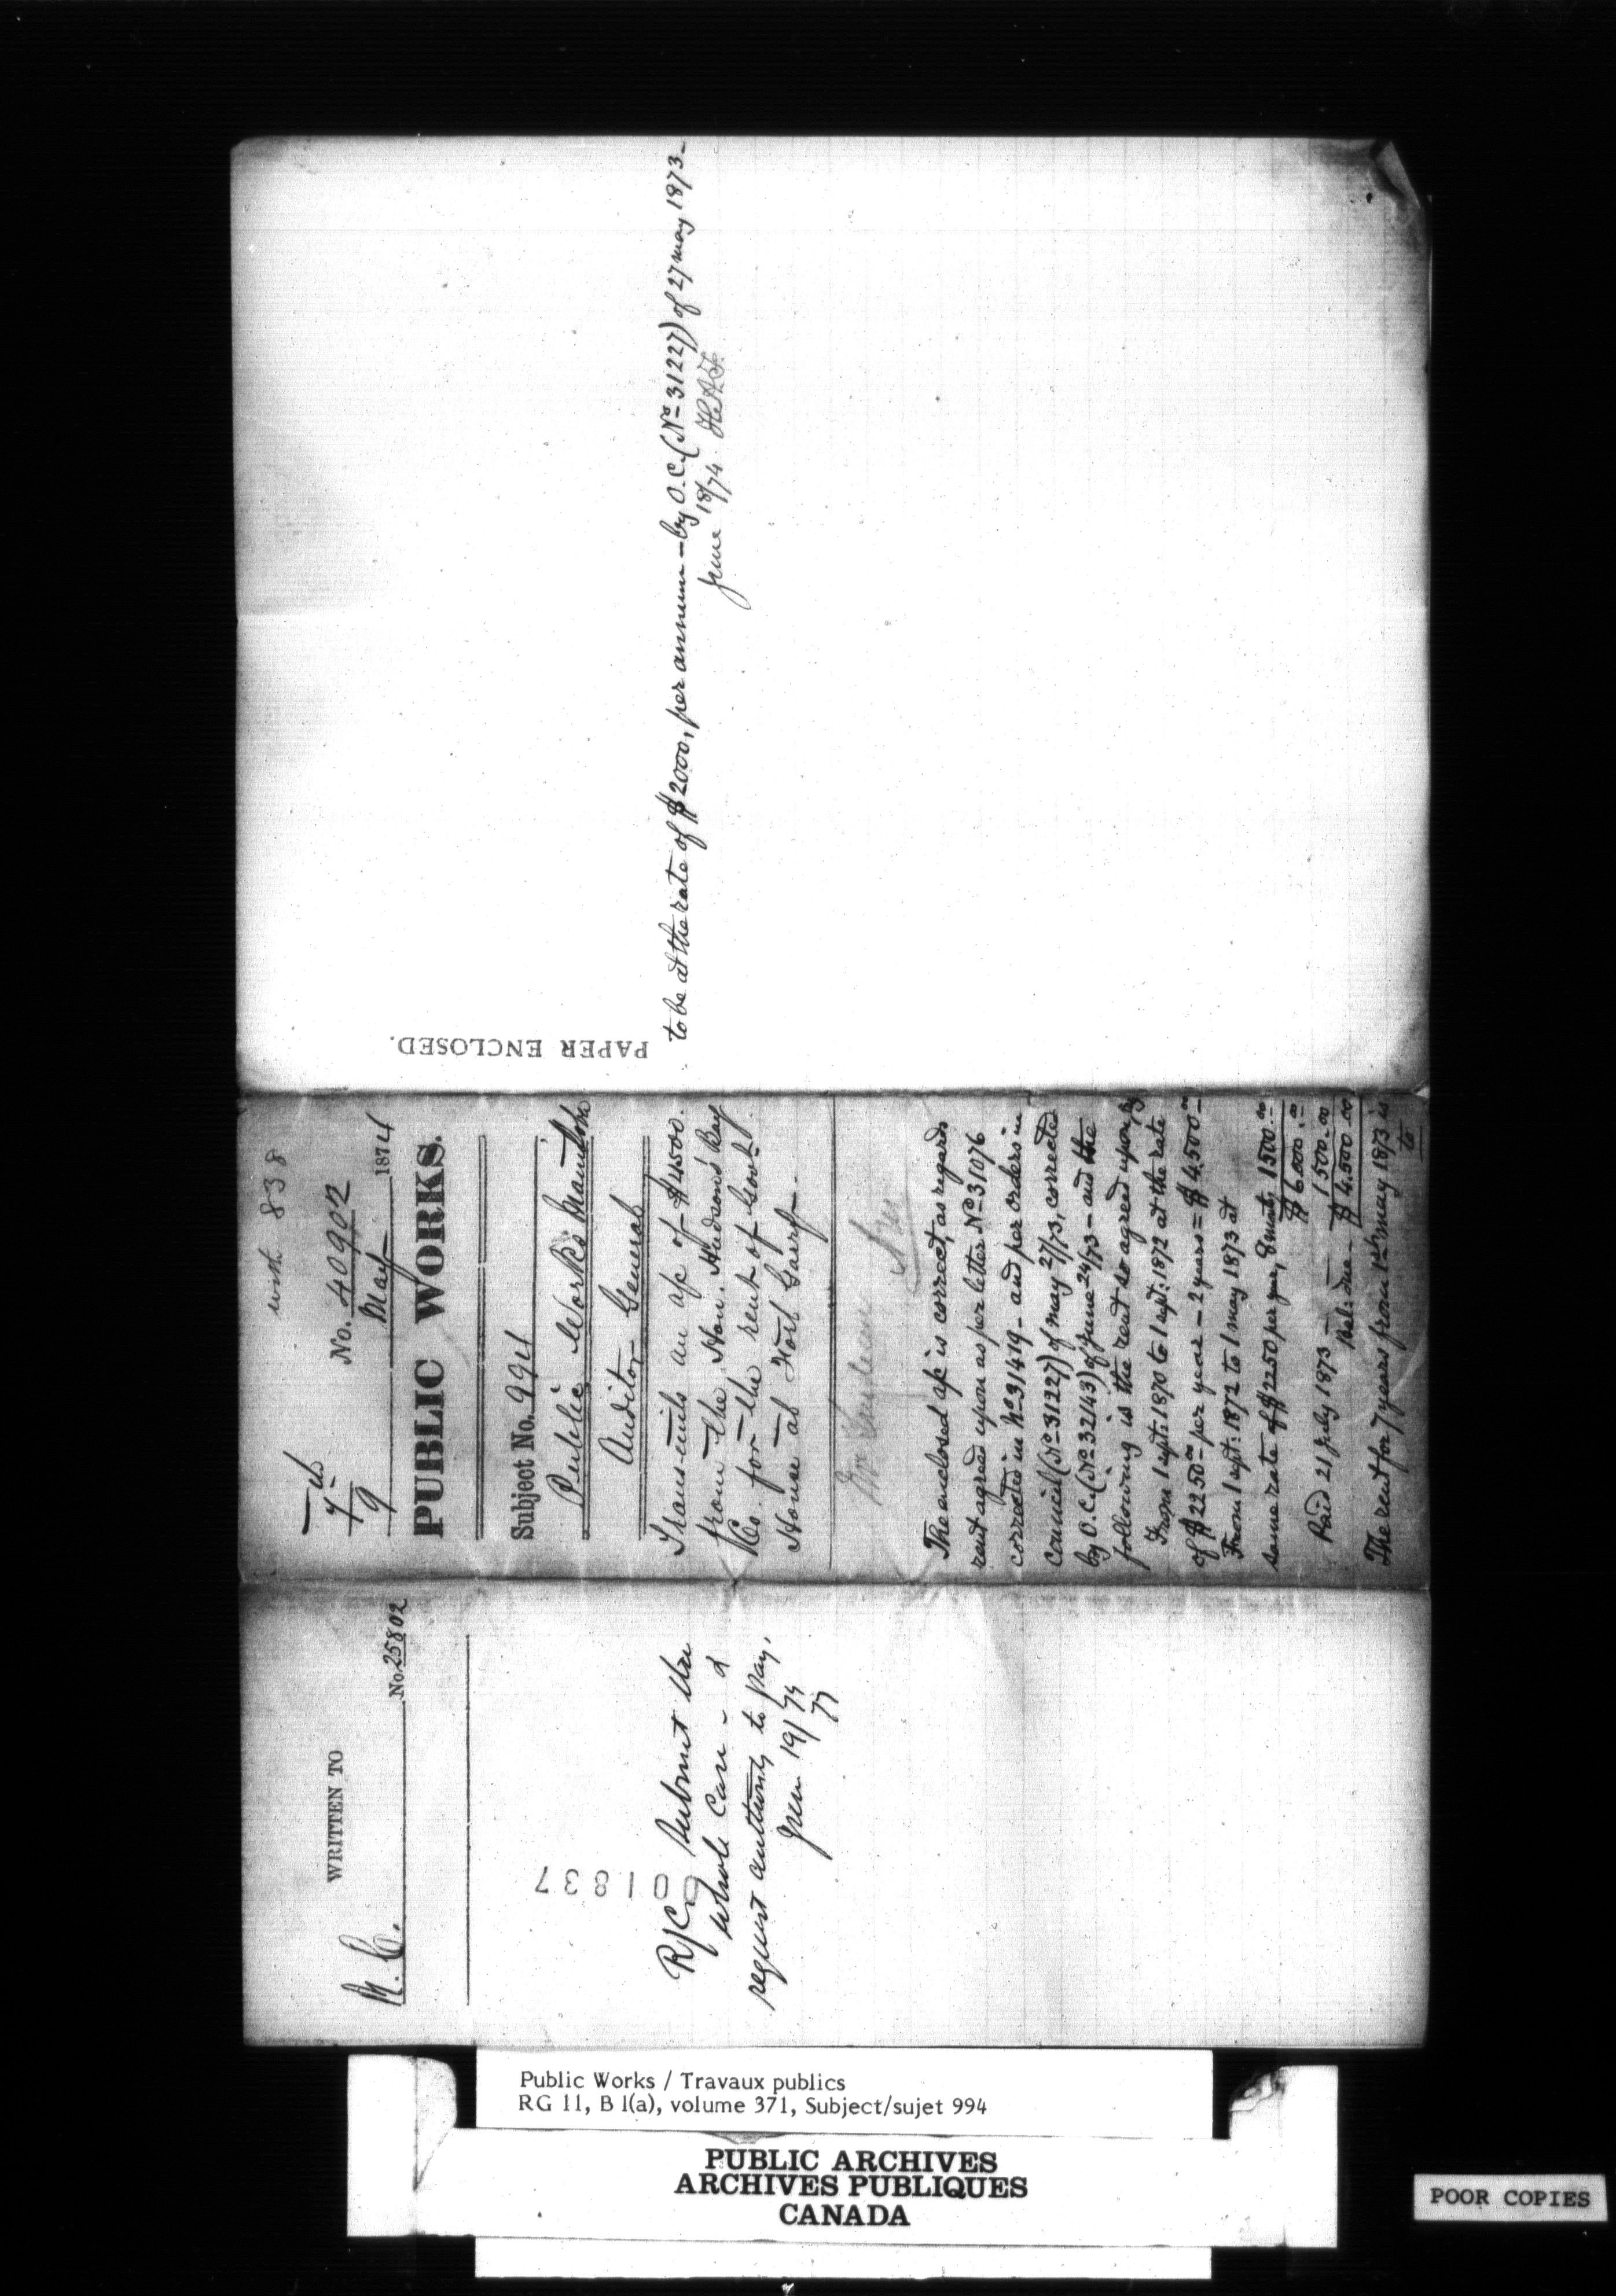 WRITTEN TO
M. C. No. 25802
001837
R/C Submit the
whole case - &
request authority to pay,
June 19/74
with 838
No. 40902
9 May 1874
PUBLIC WORKS.
Subject No. 994
Public Works Manitoba
Auditor General
Transmits an a/c of $4500.
from the Hon. Hudson's Bay
Co. for the rent of Govt.
House at Fort Garry.
The enclosed a/c is correct, as regards
rent agreed upon as per letter No. 31076
corrected in No. 31419 - and per orders in
council (No. 31227) of May 27/73, corrected
by O.C. (No. 32143) of June 24/73 - and the
following is the rent so agreed upon by
From 1 sept: 1870 to 1 sept: 1872 at the rate
of $2250.00 per year - 2 years = $4.500.00
From 1 sept: 1872 to 1 may 1873 at
same rate of $2250 per year, 8 mnts, 1500.00
$6.000.00
Paid 21 july 1873 — 1500.00
Bal: due — $4.500.00
The rent for 7 years from 1st may 1873 is
to
PAPER ENCLOSED.
to be at the rate of $2000, per annum - by O.C. (No. 31227) of 27 may 1873 -
june 18/74.
Public Works / Travaux publics
RG 11, B 1(a), volume 371, Subject/sujet 994
PUBLIC ARCHIVES
ARCHIVES PUBLIQUES
CANADA
POOR COPIES